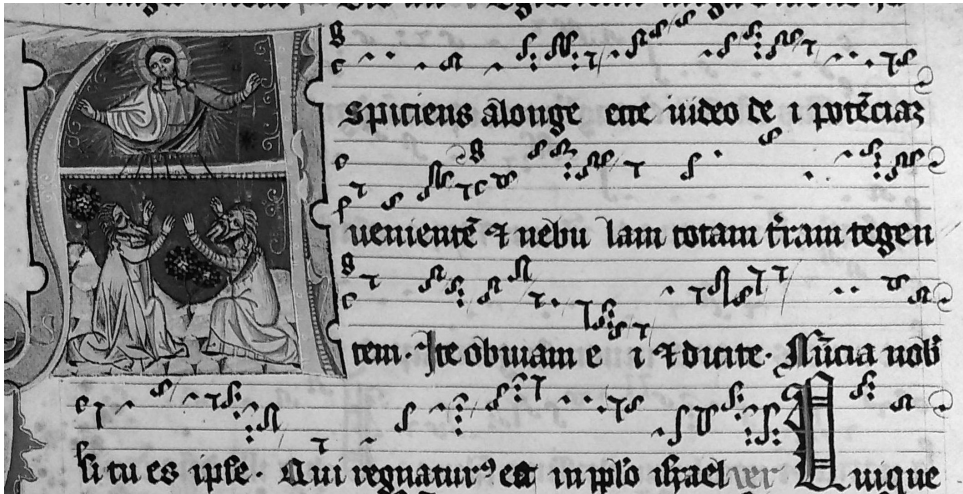 Aspiciens a longe ecce video de i potēciaꝫ
venientē ⁊ nebu lam totam t̄ram tegen
tem. Ite obviam e i ⁊ dicite. Nūcia nob̄
si tu es ipse. Qui regnaturꝰ es in pplo isr̄ael ver Quique